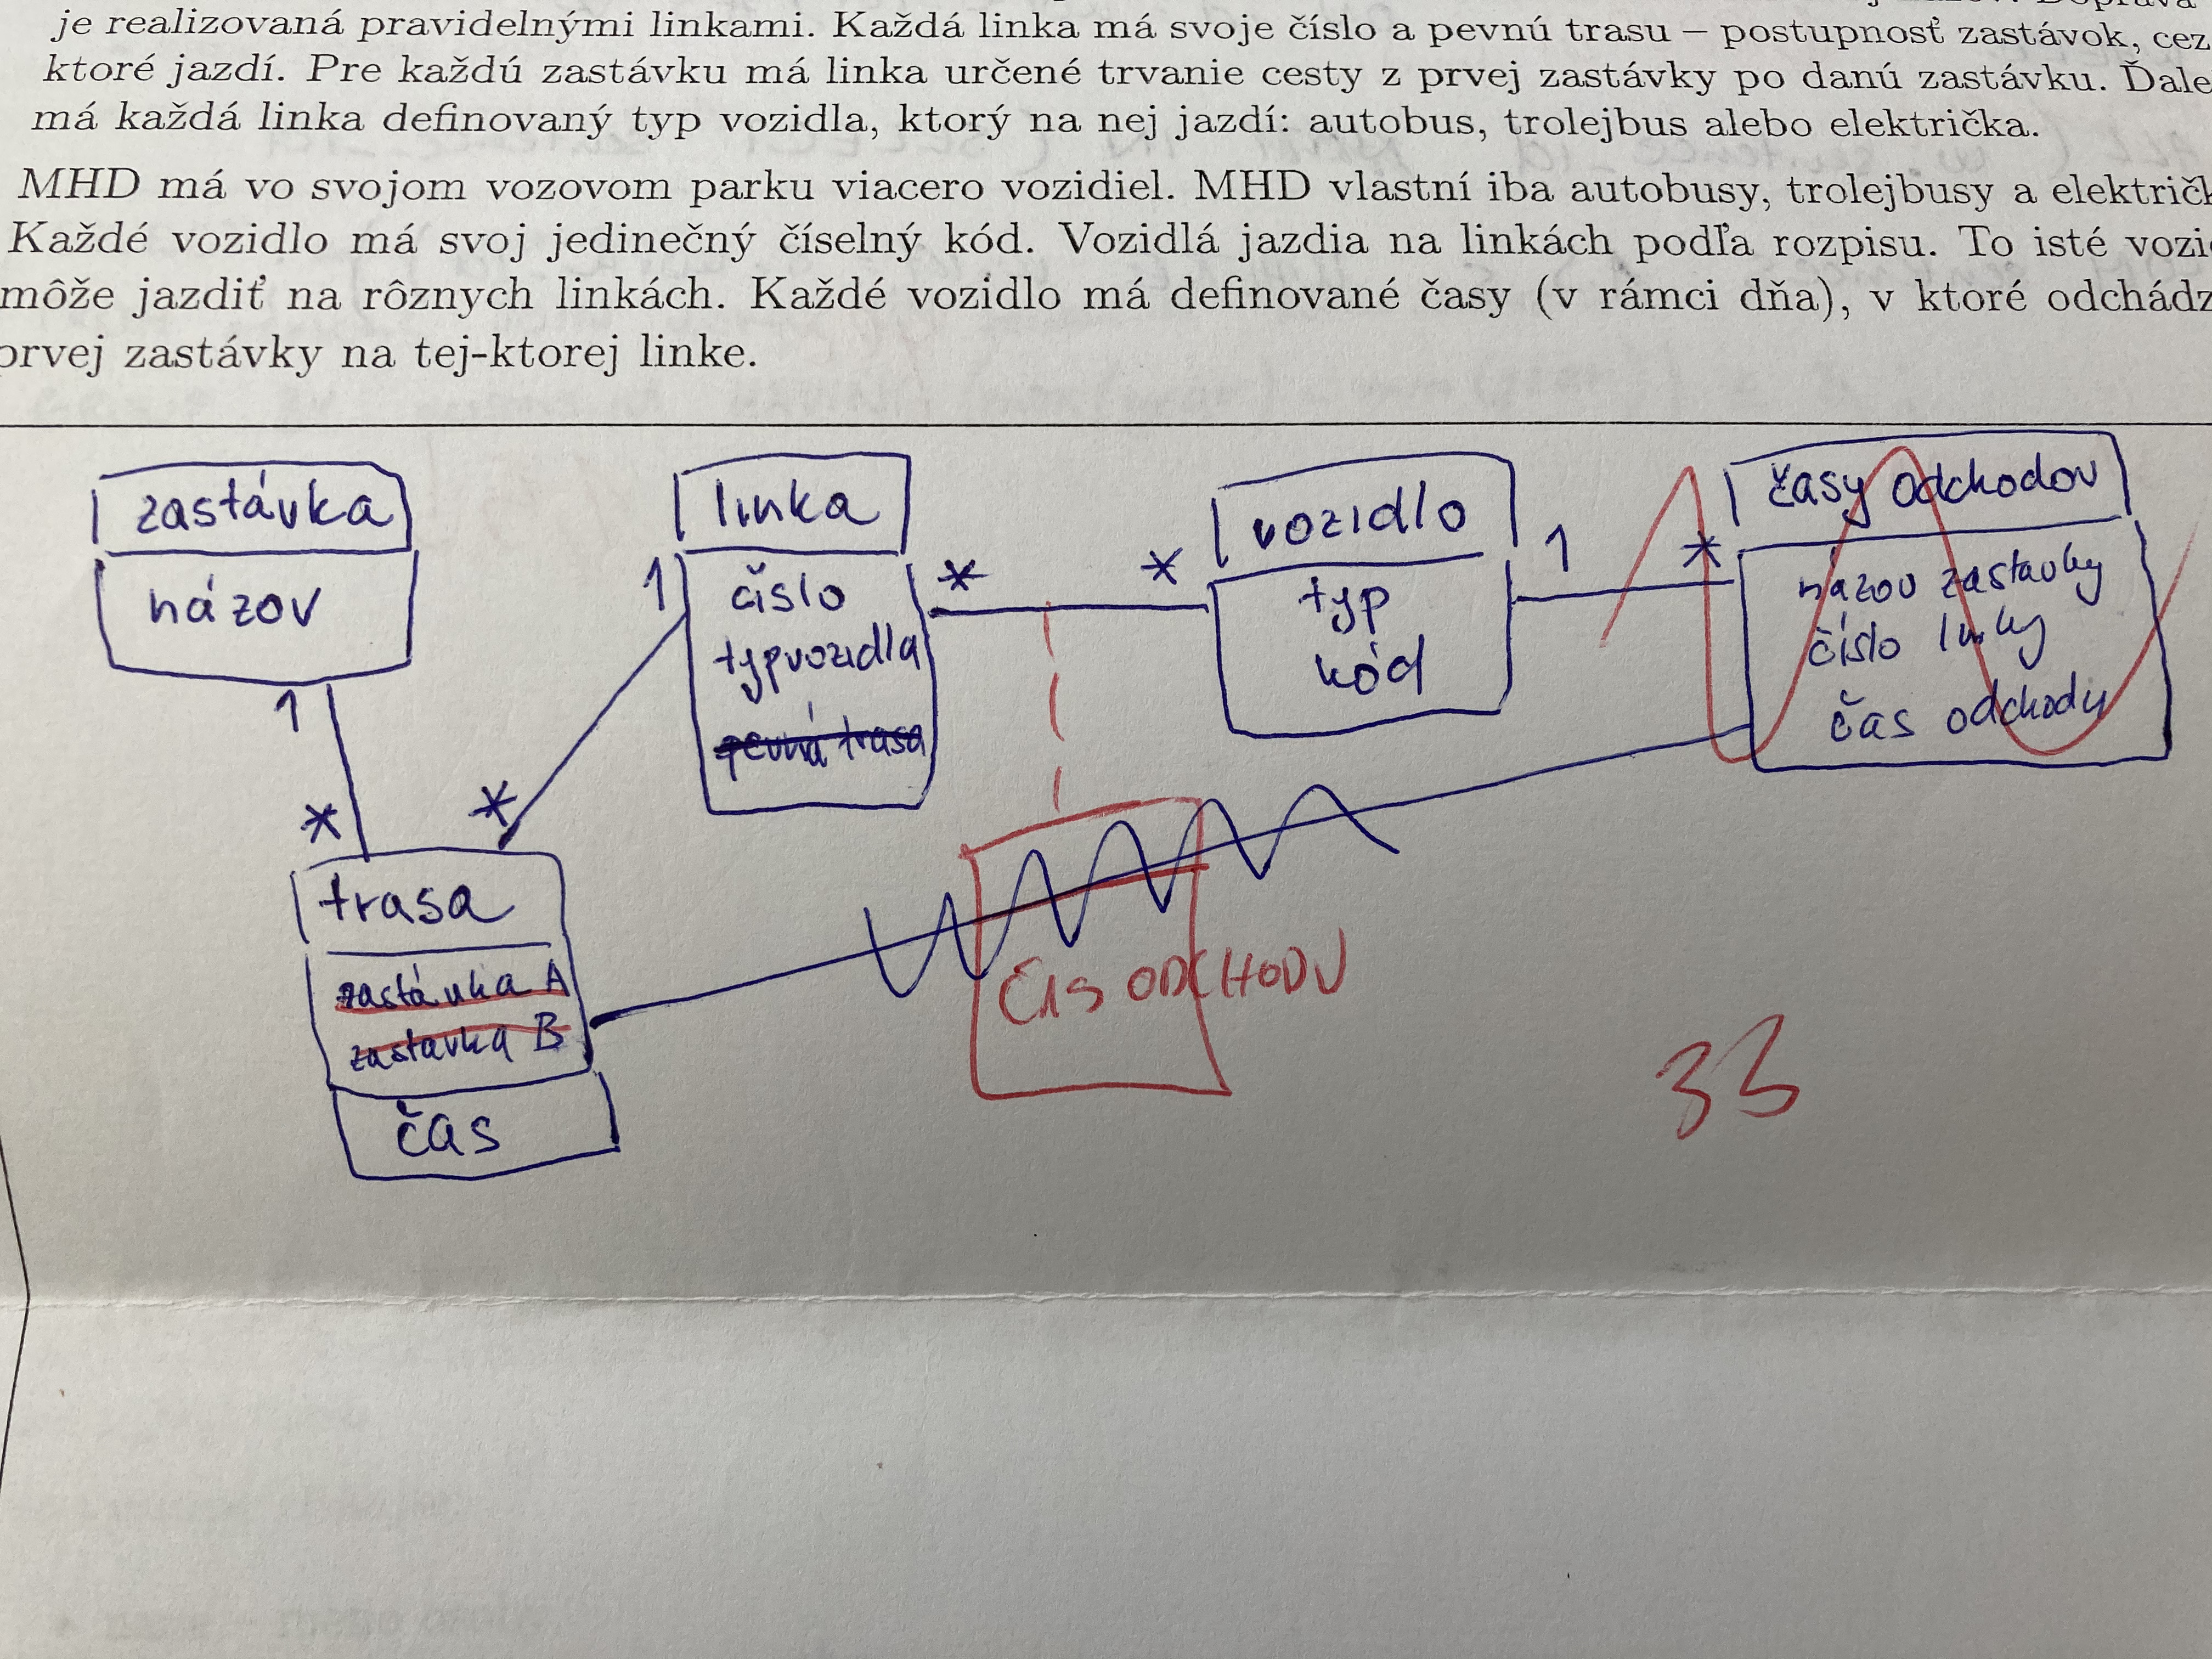 je realizovaná pravidelnými linkami. Každá linka má svoje číslo a pevnú trasu – postupnosť zastávok, cez
ktoré jazdí. Pre každú zastávku má linka určené trvanie cesty z prvej zastávky po danú zastávku. Ďale
má každá linka definovaný typ vozidla, ktorý na nej jazdí: autobus, trolejbus alebo električka.
MHD má vo svojom vozovom parku viacero vozidiel. MHD vlastní iba autobusy, trolejbusy a električk
Každé vozidlo má svoj jedinečný číselný kód. Vozidlá jazdia na linkách podľa rozpisu. To isté vozi
môže jazdiť na rôznych linkách. Každé vozidlo má definované časy (v rámci dňa), v ktoré odchádz
prvej zastávky na tej-ktorej linke.
zastávka
názov
1
*
trasa
zastávka A
zastavka B
čas
*
1
linka
číslo
typ vozidla
pevná trasa
*
*
vozidlo
typ
kód
1
*
časy odchodov
názov zastavky
číslo linky
čas odchody
ČAS ODCHODU